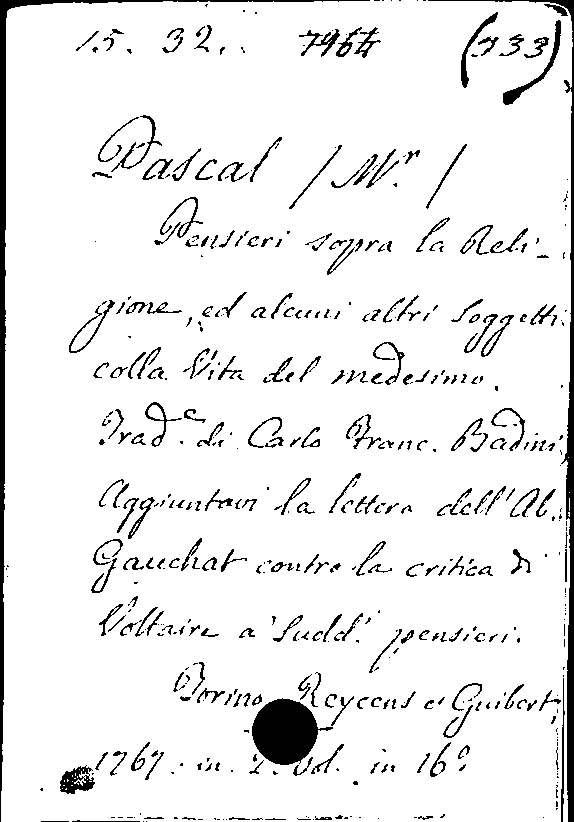 15. 32. 7964 (333)
Pascal / Mr. /
Pensieri sopra la Reli-
gione, ed alcuni altri soggetti
colla Vita del medesimo.
Trade. di Carlo Franc. Badini,
Aggiuntavi la lettera dell'Ab.
Gauchat contro la critica di
Voltaire a' Sudd.i pensieri.
Torino Reycens e Guibert,
1767. in 2. vol. in 16o